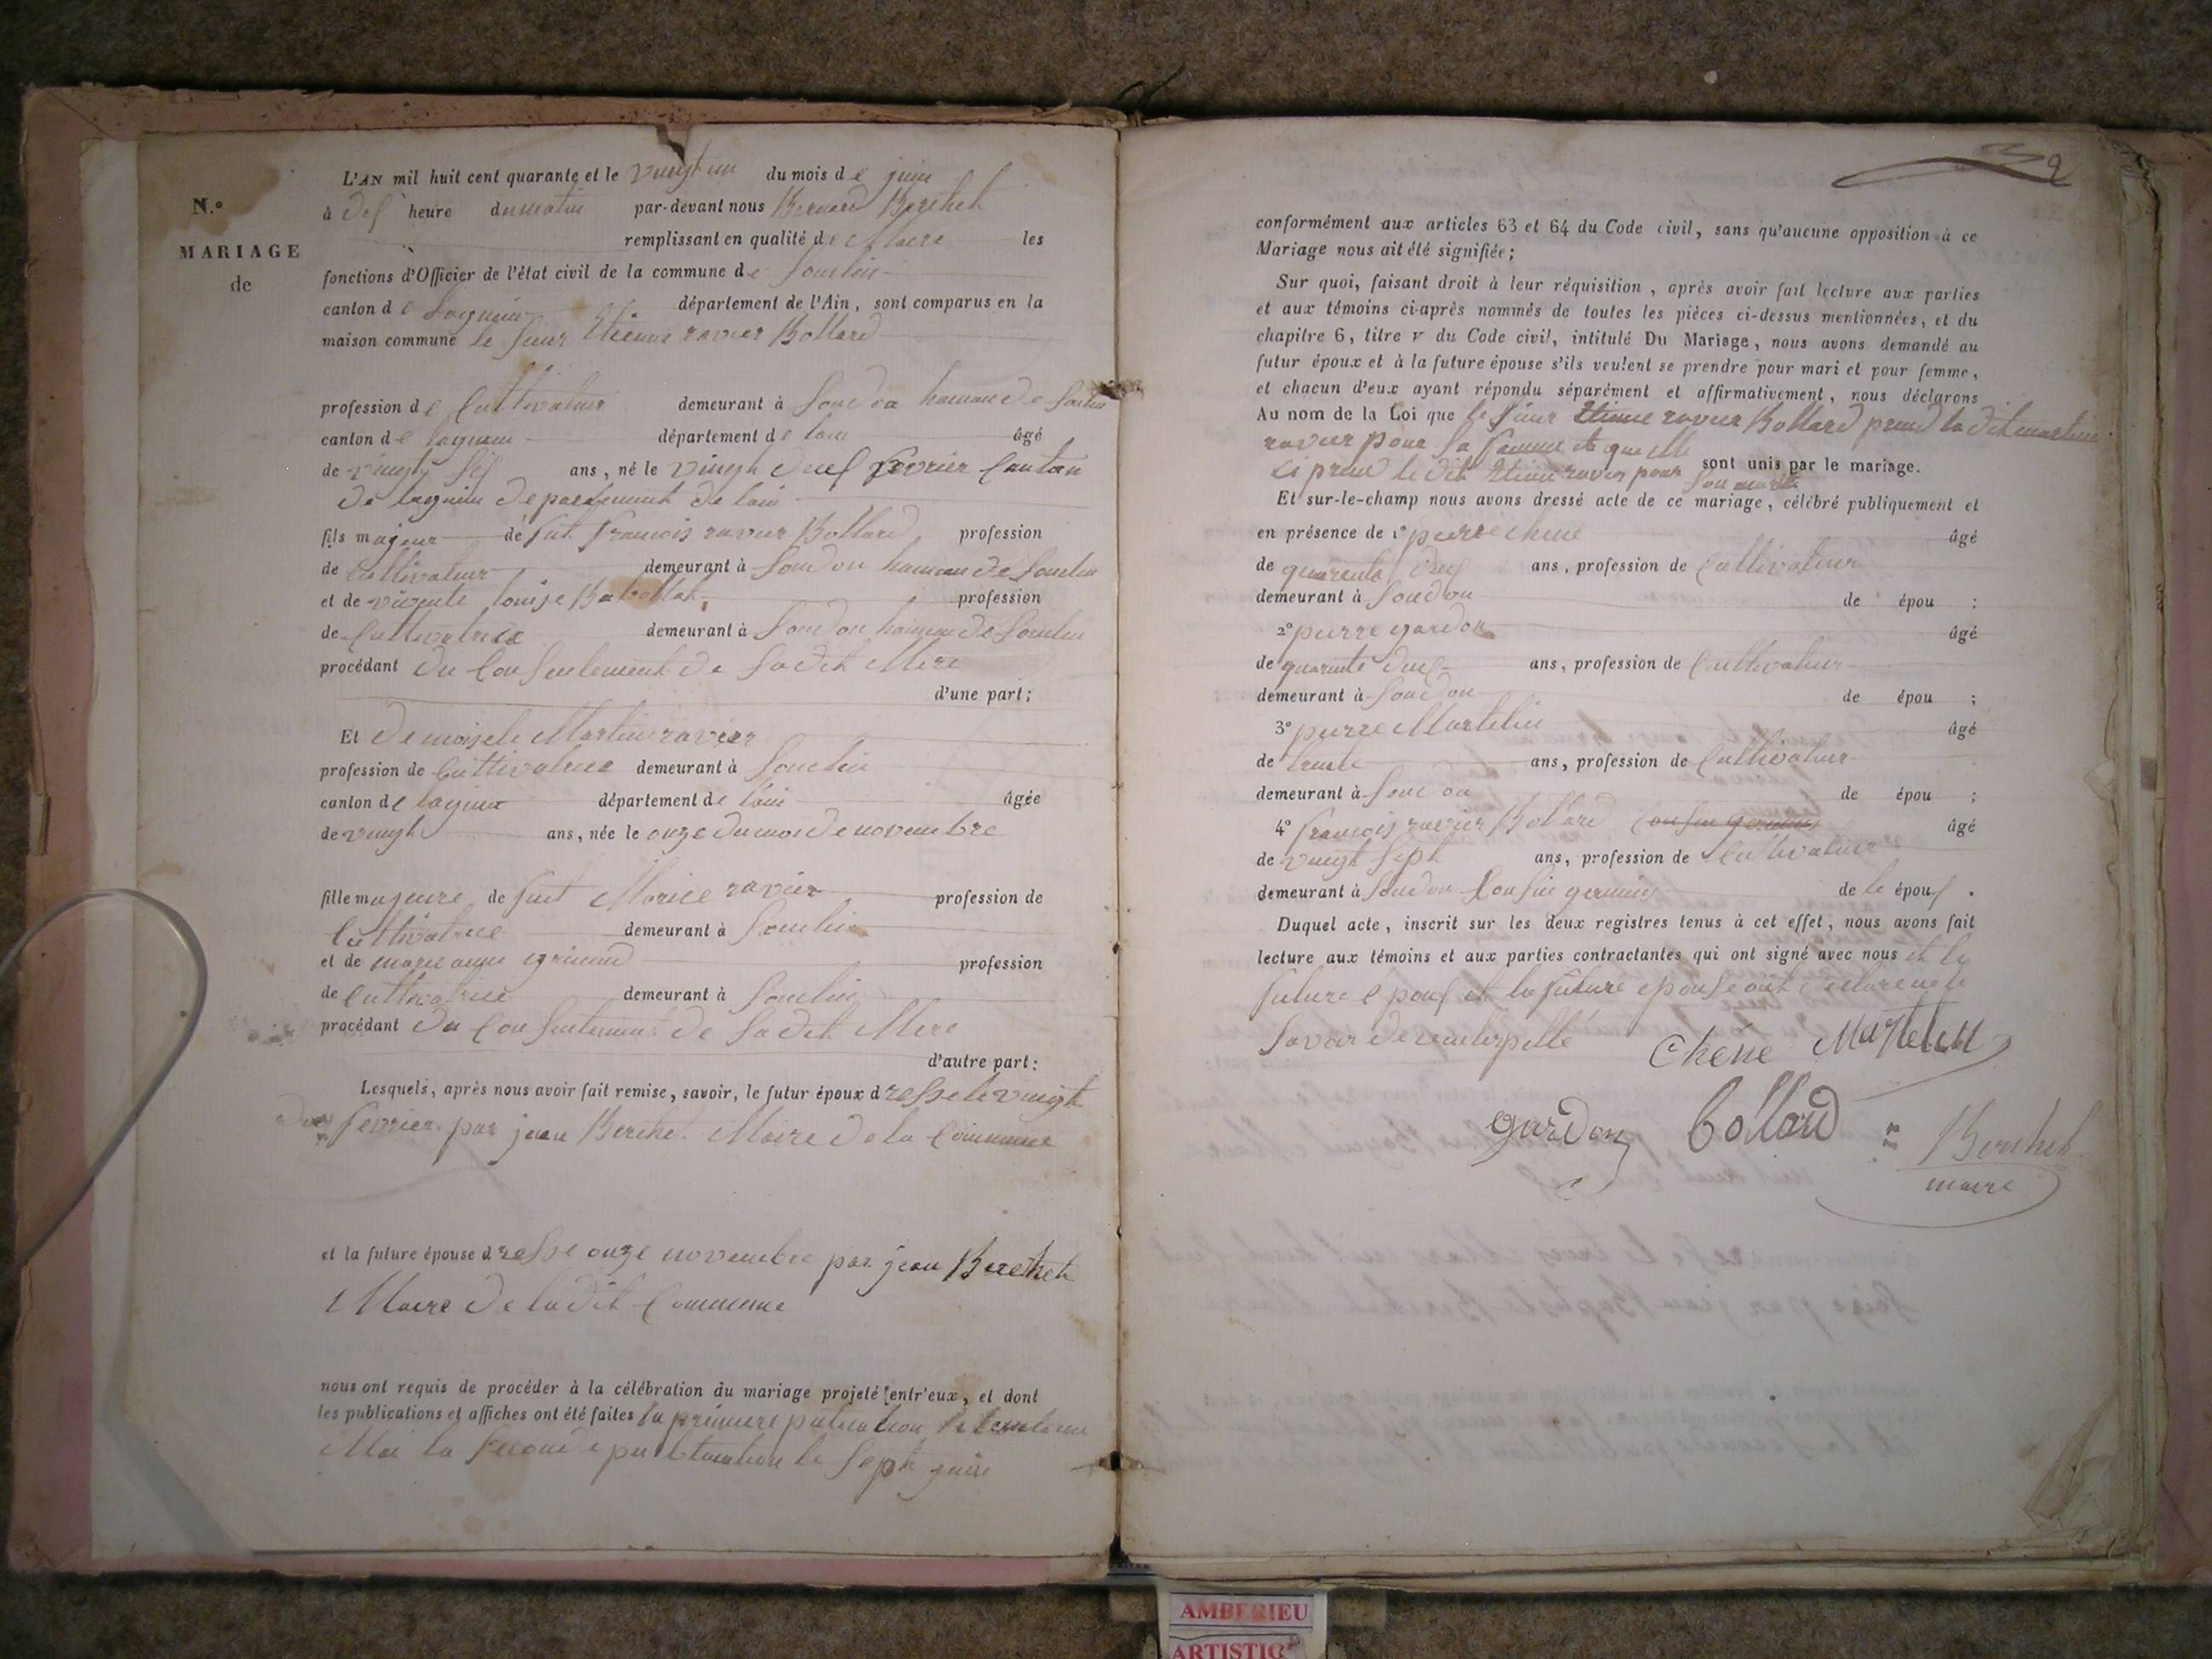 L'AN mil huit cent quarante et le vingt un du mois de juin
N.° à heure du matin par-devant nous Bernard Berthet
remplissant en qualité de Maire les
MARIAGE
fonctions d'Officier de l'état civil de la commune de Souclin
de
canton de lagnieu département de l'Ain, sont comparus en la
maison commune le sieur Etienne ravier Bollard
profession de Cultivateur demeurant à Soudon hameau de Souclin
canton de lagnieu département de lain âgé
de vingt ans, né le vingt fevrier Canton
de lagnieu departement de lain
fils majeur de fut francois ravier Bollard profession
de Cultivateur demeurant à Soudon hameau de Souclin
et de vivente louise profession
de Cultivatrice demeurant à Soudon hameau de Souclin
procédant du Consentement de sa dit Mere
d'une part;
Et demoisele Martine ravier
profession de Cultivatrice demeurant à Souclin
canton de département de lain âgée
de vingt ans, née le onze du moi de novembre
fille majeure de fut Morice ravier profession de
Cultivatrice demeurant à Souclin
et de marie anne profession
de Cultivatrice demeurant à Souclin
procédant du Consentement de sa dit Mere
d'autre part:
Lesquels, après nous avoir fait remise, savoir, le futur époux dresse le vingt
fevrier par jean Berthet Maire de la Commune
et la future épouse dresse onze novembre par jean Berthet
Maire de ladit Commune
nous ont requis de procéder à la célébration du mariage projeté entr'eux, et dont
les publications et affiches ont été faites la premiere
Mai la le sept juin
2
conformément aux articles 63 et 64 du Code civil, sans qu'aucune opposition à ce
Mariage nous ait été signifiée;
Sur quoi, faisant droit à leur réquisition, après avoir fait lecture aux parties
et aux témoins ci-après nommés de toutes les pièces ci-dessus mentionnées, et du
chapitre 6, titre v du Code civil, intitulé Du Mariage, nous avons demandé au
futur époux et à la future épouse s'ils veulent se prendre pour mari et pour femme,
et chacun d'eux ayant répondu séparément et affirmativement, nous déclarons
Au nom de la Loi que le sieur Etienne ravier Bollard prend la dit martine
ravier pour sa famme et quelle
prend le dit Etienne ravier pour son mari sont unis par le mariage.
Et sur-le-champ nous avons dressé acte de ce mariage, célébré publiquement et
en présence de 1° pierre chene âgé
de quarente ans, profession de Cultivateur
demeurant à Soudon de épou ;
2° pierre gardon âgé
de quarente ans, profession de Cultivateur
demeurant à Soudon de épou ;
3° pierre Martelin âgé
de trente ans, profession de Cultivateur
demeurant à Soudon de épou ;
4° francois ravier Bollard cousin germain âgé
de vingt sept ans, profession de Cultivateur
demeurant à Soudon Cousin germain de le époux.
Duquel acte, inscrit sur les deux registres tenus à cet effet, nous avons fait
lecture aux témoins et aux parties contractantes qui ont signé avec nous et le
future epoux et la future epouse ont declare ne le
savoir de
chene Martelin
gardon bollard Berthet
maire
AMBERIEU
ARTISTIC